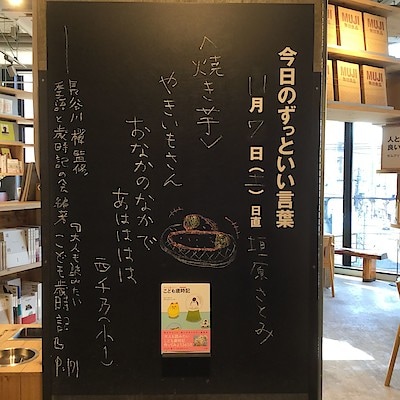 今日のずっといい言葉
11月7日(土)日直 垣原さとみ
<焼き芋>
やきいもさん
おなかのなかで
あはははは
西千乃(小1)
長谷川 櫂 監修
季語と歳時記の会 編著
『大人も読みたい こども歳時記』
こども歳時記
MUJI
MUJI
MUJI
MUJI
人と
良い